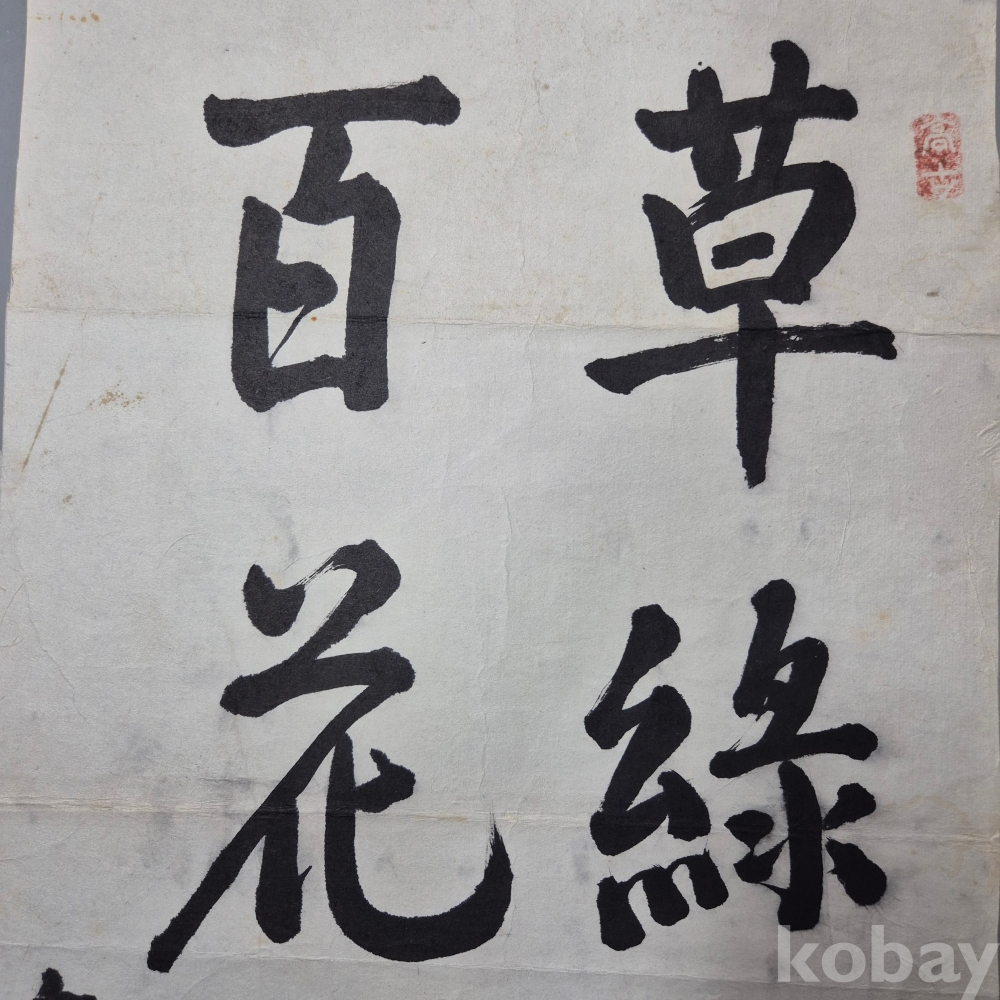 草綠
百花
高士
kobay